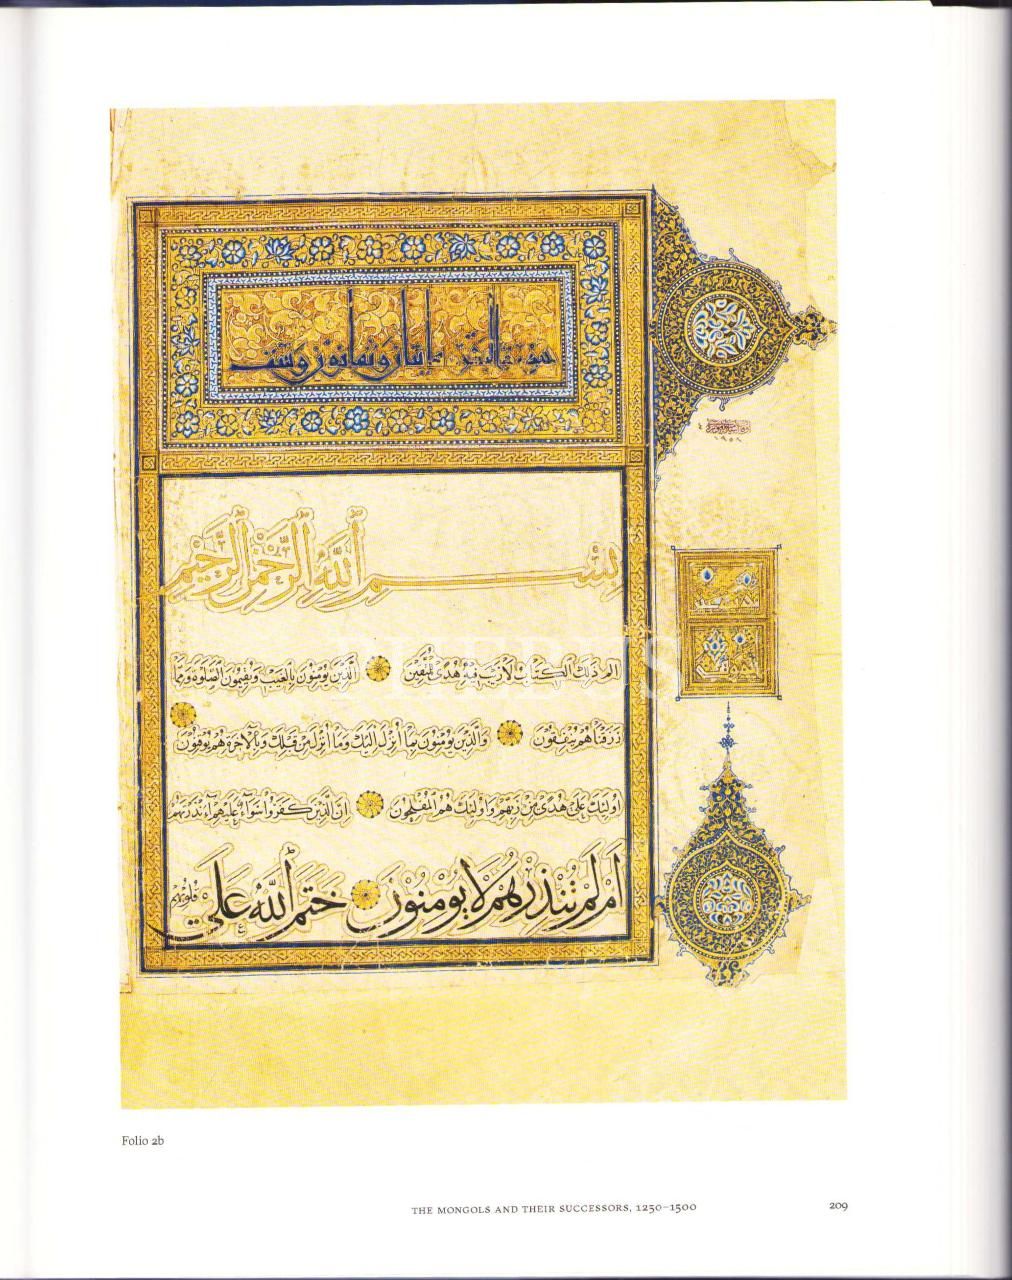 سورة البقرة مايتان وثمانون وست
بِسْمِ اللَّهِ الرَّحْمَنِ الرَّحِيمِ
الم ذلك الكتاب لا ريب فيه هدى للمتقين الذين يومنون بالغيب ويقيمون الصلوة ومما
رزقناهم ينفقون والذين يومنون بما أنزل اليك وما أنزل من قبلك وبالاخرة هم يوقنون
اولئك على هدى من ربهم واولئك هم المفلحون ان الذين كفروا سواء عليهم ءانذرتهم
ام لم تنذرهم لا يومنون ختم الله على قلوبهم
Folio 2b
THE MONGOLS AND THEIR SUCCESSORS, 1250–1500 209